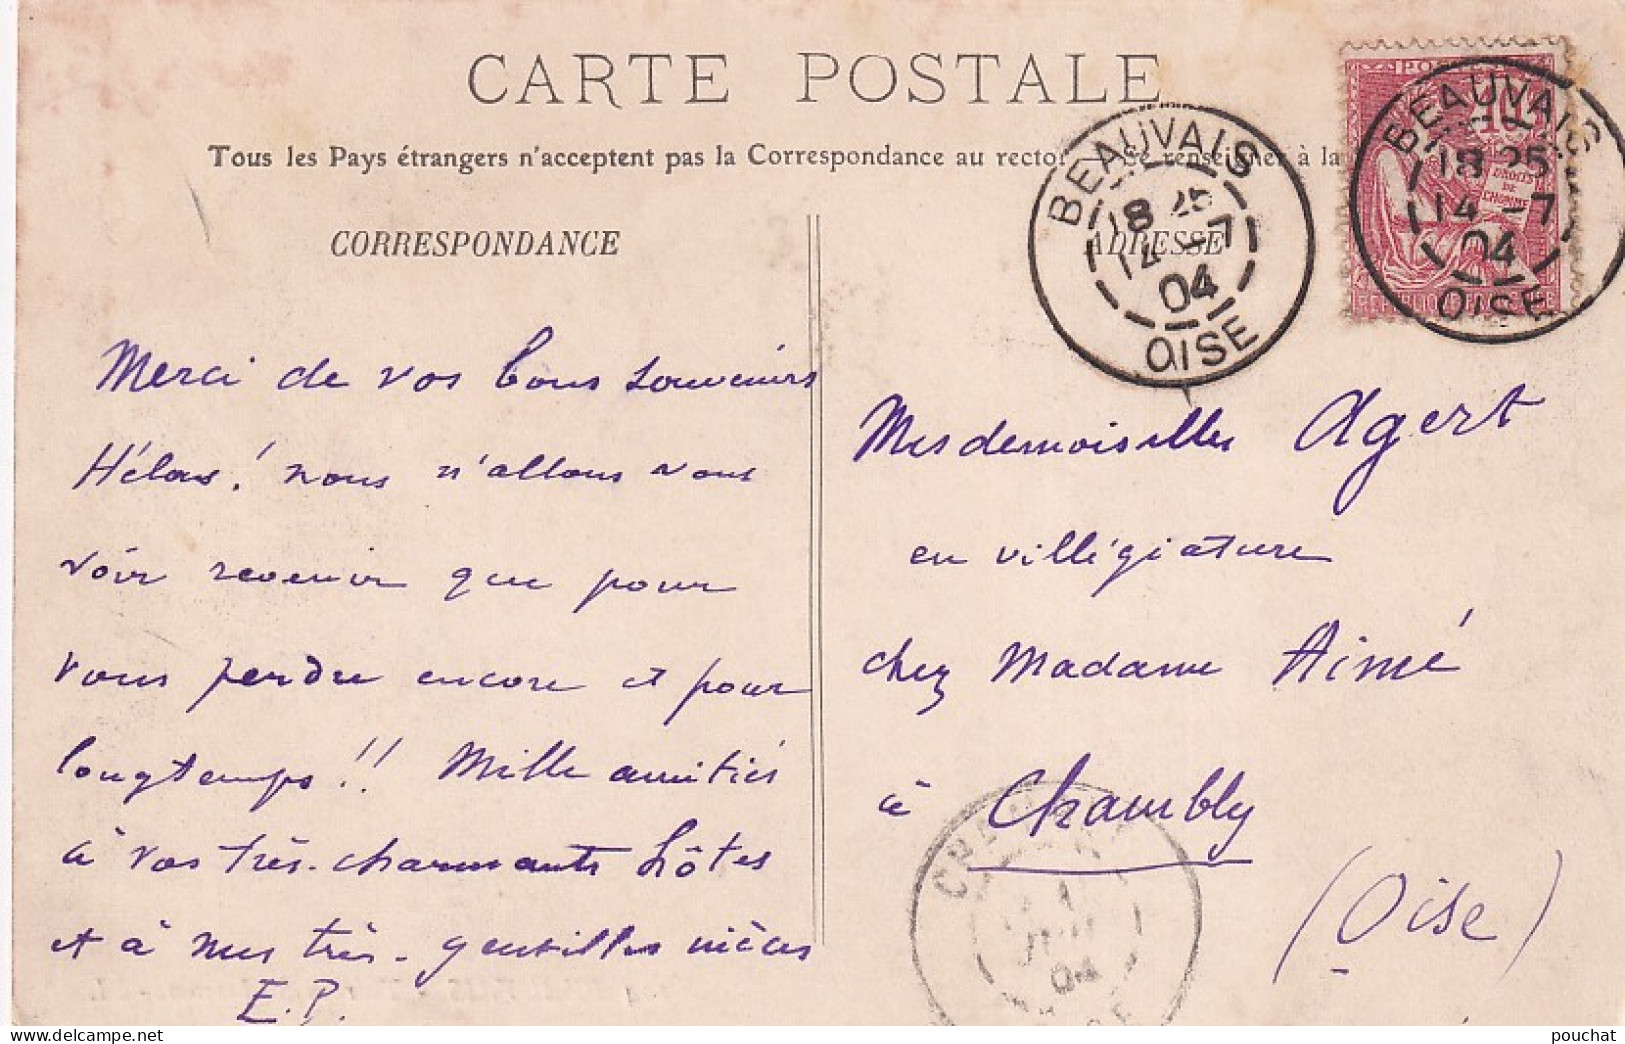 CARTE POSTALE
Tous les Pays étrangers n'acceptent pas la Correspondance au recto. Se renseigner à la
CORRESPONDANCE
ADRESSE
BEAUVAIS
18 25
14 -7
04
OISE
POSTES
10
DROITS
DE
L'HOMME
BEAUVAIS
18 25
14 -7
04
OISE
Merci de vos bons souvenirs
Hélas! nous n'allons vous
voir revenir que pour
vous perdre encore et pour
longtemps!! Mille amitiés
à vos très-charmants hôtes
et à mes très-gentilles nièces
E.P.
Mesdemoiselles Agert
en villégiature
chez Madame Aimé
à Chambly
(Oise)
04
pouchat